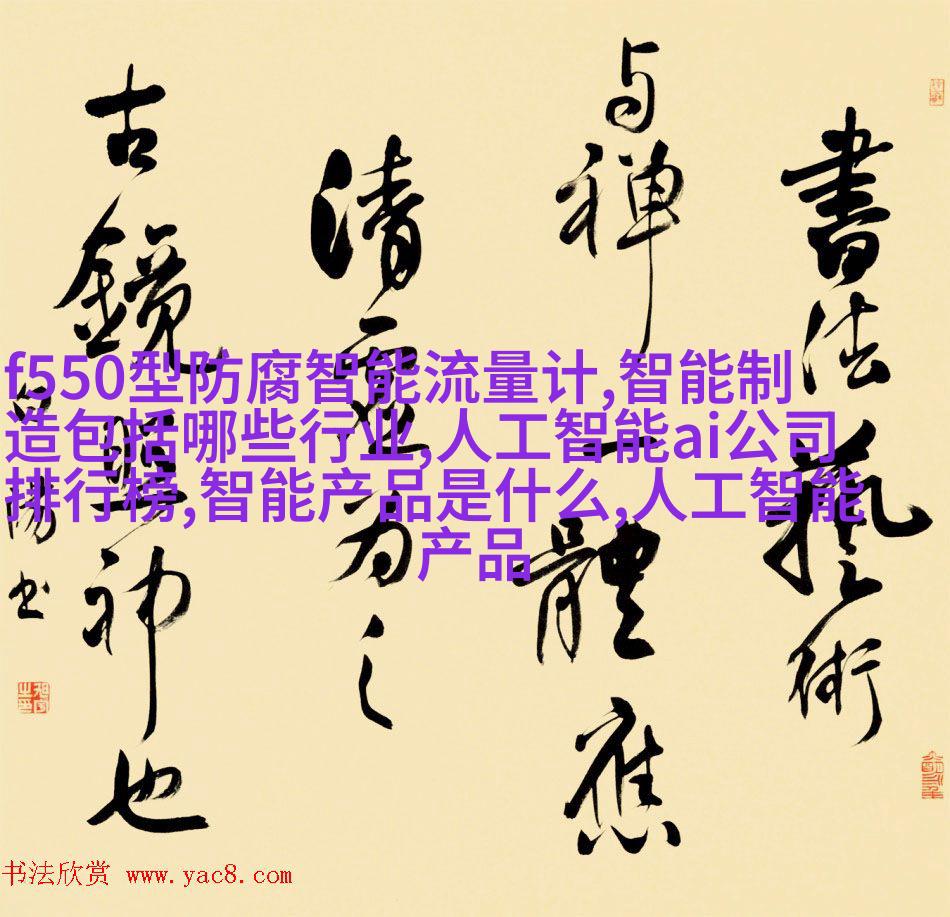 書法藝術
与禅一體應
清虛为之
古鏡照神也
昌揚书
f550型防腐智能流量计,智能制
造包括哪些行业,人工智能ai公司
排行榜,智能产品是什么,人工智能
产品
书法欣赏 www.yac8.com